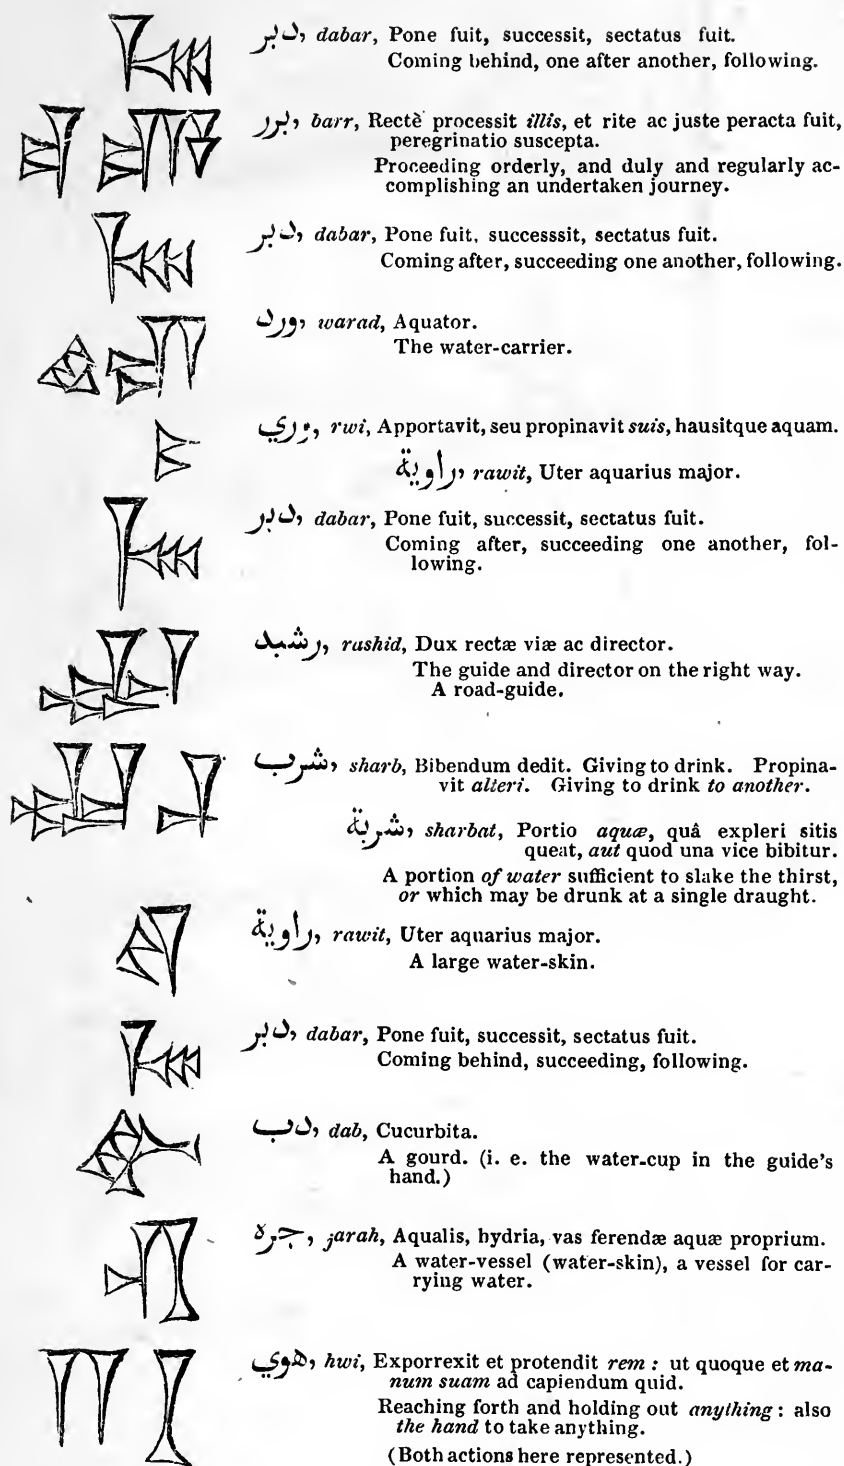 دبر, dabar, Pone fuit, successit, sectatus fuit.
Coming behind, one after another, following.
برر, barr, Rectè processit illis, et rite ac juste peracta fuit,
peregrinatio suscepta.
Proceeding orderly, and duly and regularly ac-
complishing an undertaken journey.
دبر, dabar, Pone fuit, successsit, sectatus fuit.
Coming after, succeeding one another, following.
ورد, warad, Aquator.
The water-carrier.
rwi, Apportavit, seu propinavit suis, hausitque aquam.
راوية, rawit, Uter aquarius major.
دبر, dabar, Pone fuit, successit, sectatus fuit.
Coming after, succeeding one another, fol-
lowing.
رشيد, rashid, Dux rectæ viæ ac director.
The guide and director on the right way.
A road-guide.
شرب, sharb, Bibendum dedit. Giving to drink. Propina-
vit alteri. Giving to drink to another.
شربة, sharbat, Portio aquæ, quâ expleri sitis
queat, aut quod una vice bibitur.
A portion of water sufficient to slake the thirst,
or which may be drunk at a single draught.
راوية, rawit, Uter aquarius major.
A large water-skin.
دبر, dabar, Pone fuit, successit, sectatus fuit.
Coming behind, succeeding, following.
دب, dab, Cucurbita.
A gourd. (i. e. the water-cup in the guide's
hand.)
جره, jarah, Aqualis, hydria, vas ferendæ aquæ proprium.
A water-vessel (water-skin), a vessel for car-
rying water.
هوي, hwi, Exporrexit et protendit rem : ut quoque et ma-
num suam ad capiendum quid.
Reaching forth and holding out anything : also
the hand to take anything.
(Both actions here represented.)